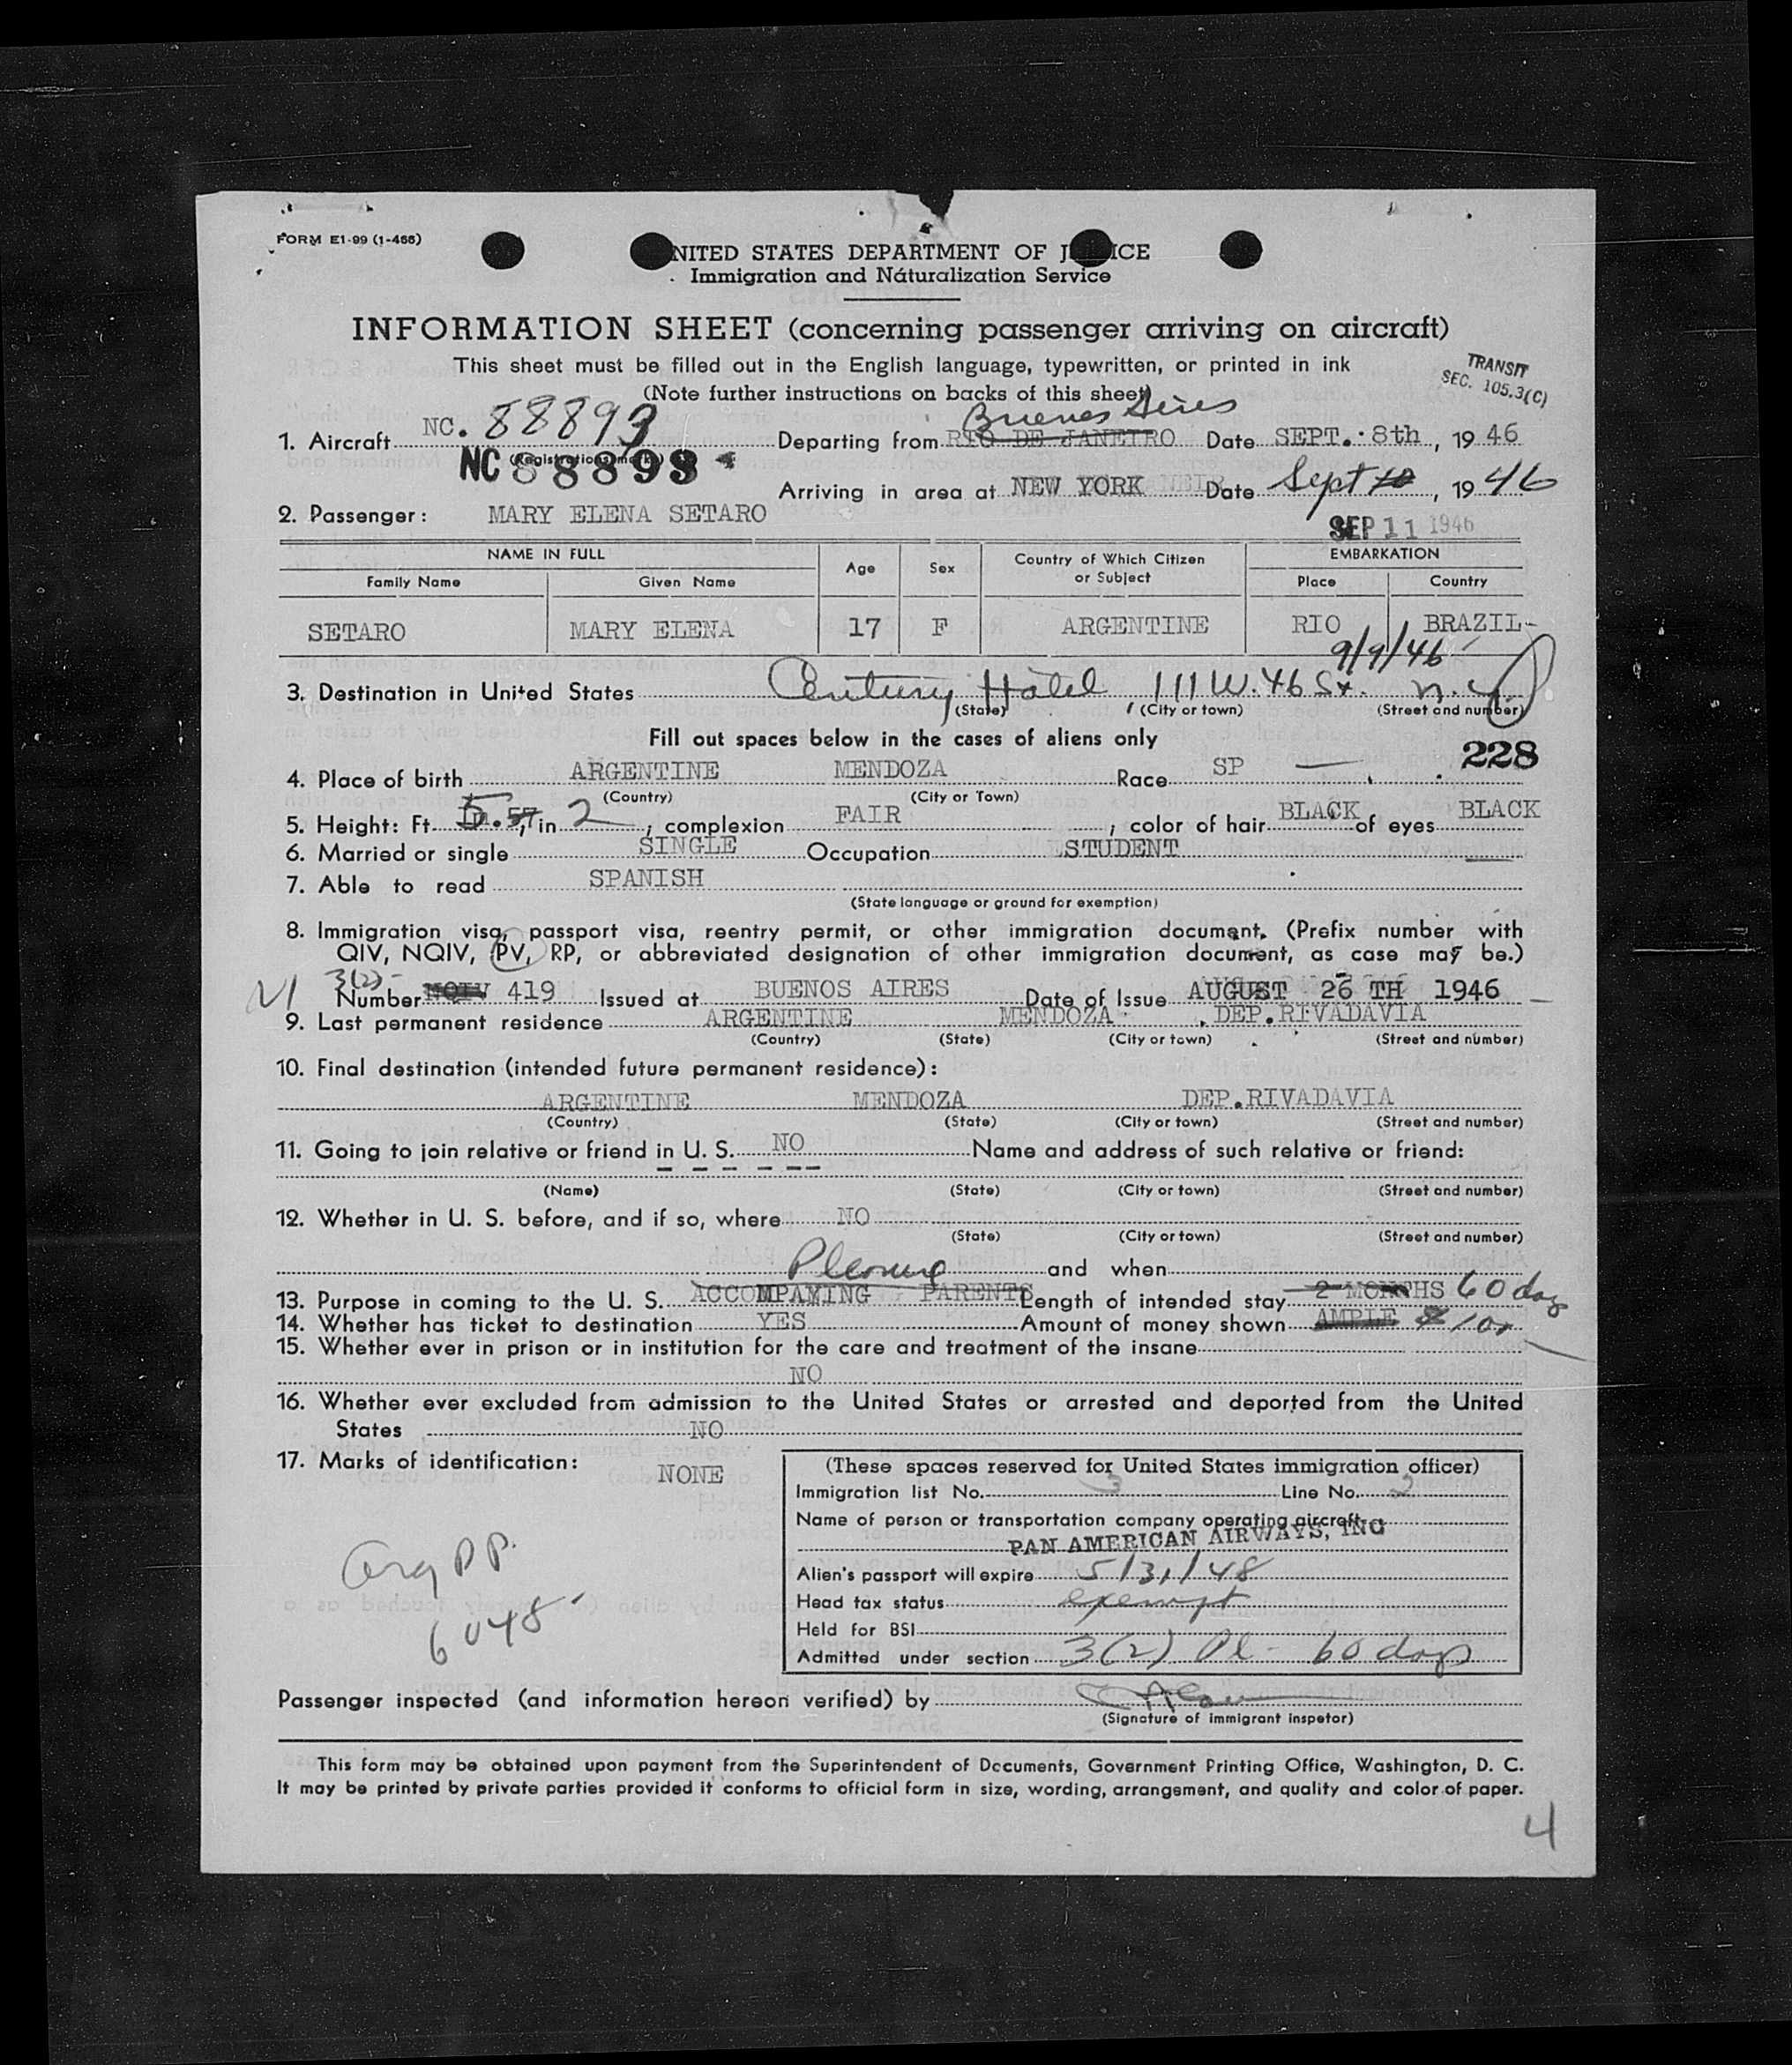 FORM E1-99 (1-468)
NITED STATES DEPARTMENT OF J ICE
Immigration and Naturalization Service
INFORMATION SHEET (concerning passenger arriving on aircraft)
This sheet must be filled out in the English language, typewritten, or printed in ink
(Note further instructions on backs of this sheet)
TRANSIT
SEC. 105.3(C)
Buenos Aires
1. Aircraft NC. 88893 Departing from RIO DE JANEIRO Date SEPT. 8th, 19 46
(Registration marks)
NC 88893
Arriving in area at NEW YORK Date Sept 10, 19 46
2. Passenger: MARY ELENA SETARO
SEP 11 1946
NAME IN FULL Age Sex Country of Which Citizen or Subject EMBARKATION
Family Name Given Name Place Country
SETARO MARY ELENA 17 F ARGENTINE RIO BRAZIL-
9/9/46
3. Destination in United States Century Hotel, 111 W. 46 St. N.Y.
(State) (City or town) (Street and number)
Fill out spaces below in the cases of aliens only
228
4. Place of birth ARGENTINE MENDOZA Race SP
(Country) (City or Town)
5. Height: Ft. 5, in 2, complexion FAIR, color of hair BLACK of eyes BLACK
6. Married or single SINGLE Occupation STUDENT
7. Able to read SPANISH
(State language or ground for exemption)
8. Immigration visa, passport visa, reentry permit, or other immigration document. (Prefix number with
QIV, NQIV, PV, RP, or abbreviated designation of other immigration document, as case may be.)
3(2)-
Number NQIV 419 Issued at BUENOS AIRES Date of Issue AUGUST 26 TH 1946
9. Last permanent residence ARGENTINE MENDOZA DEP.RIVADAVIA
(Country) (State) (City or town) (Street and number)
10. Final destination (intended future permanent residence):
ARGENTINE MENDOZA DEP.RIVADAVIA
(Country) (State) (City or town) (Street and number)
11. Going to join relative or friend in U. S. NO Name and address of such relative or friend:
(Name) (State) (City or town) (Street and number)
12. Whether in U. S. before, and if so, where NO
(State) (City or town) (Street and number)
Pleasure and when
13. Purpose in coming to the U. S. ACCOMPAMING PARENTS Length of intended stay 2 MONTHS 60 days
14. Whether has ticket to destination YES Amount of money shown AMPLE $ 10x
15. Whether ever in prison or in institution for the care and treatment of the insane
NO
16. Whether ever excluded from admission to the United States or arrested and deported from the United
States NO
17. Marks of identification: NONE
(These spaces reserved for United States immigration officer)
Immigration list No. 3 Line No. 2
Name of person or transportation company operating aircraft
PAN AMERICAN AIRWAYS, INC
Alien's passport will expire 5/31/48
Head tax status exempt
Held for BSI
Admitted under section 3(2) Pl - 60 days
Arg PP.
6048-
Passenger inspected (and information hereon verified) by
(Signature of immigrant inspetor)
This form may be obtained upon payment from the Superintendent of Documents, Government Printing Office, Washington, D. C.
It may be printed by private parties provided it conforms to official form in size, wording, arrangement, and quality and color of paper.
4